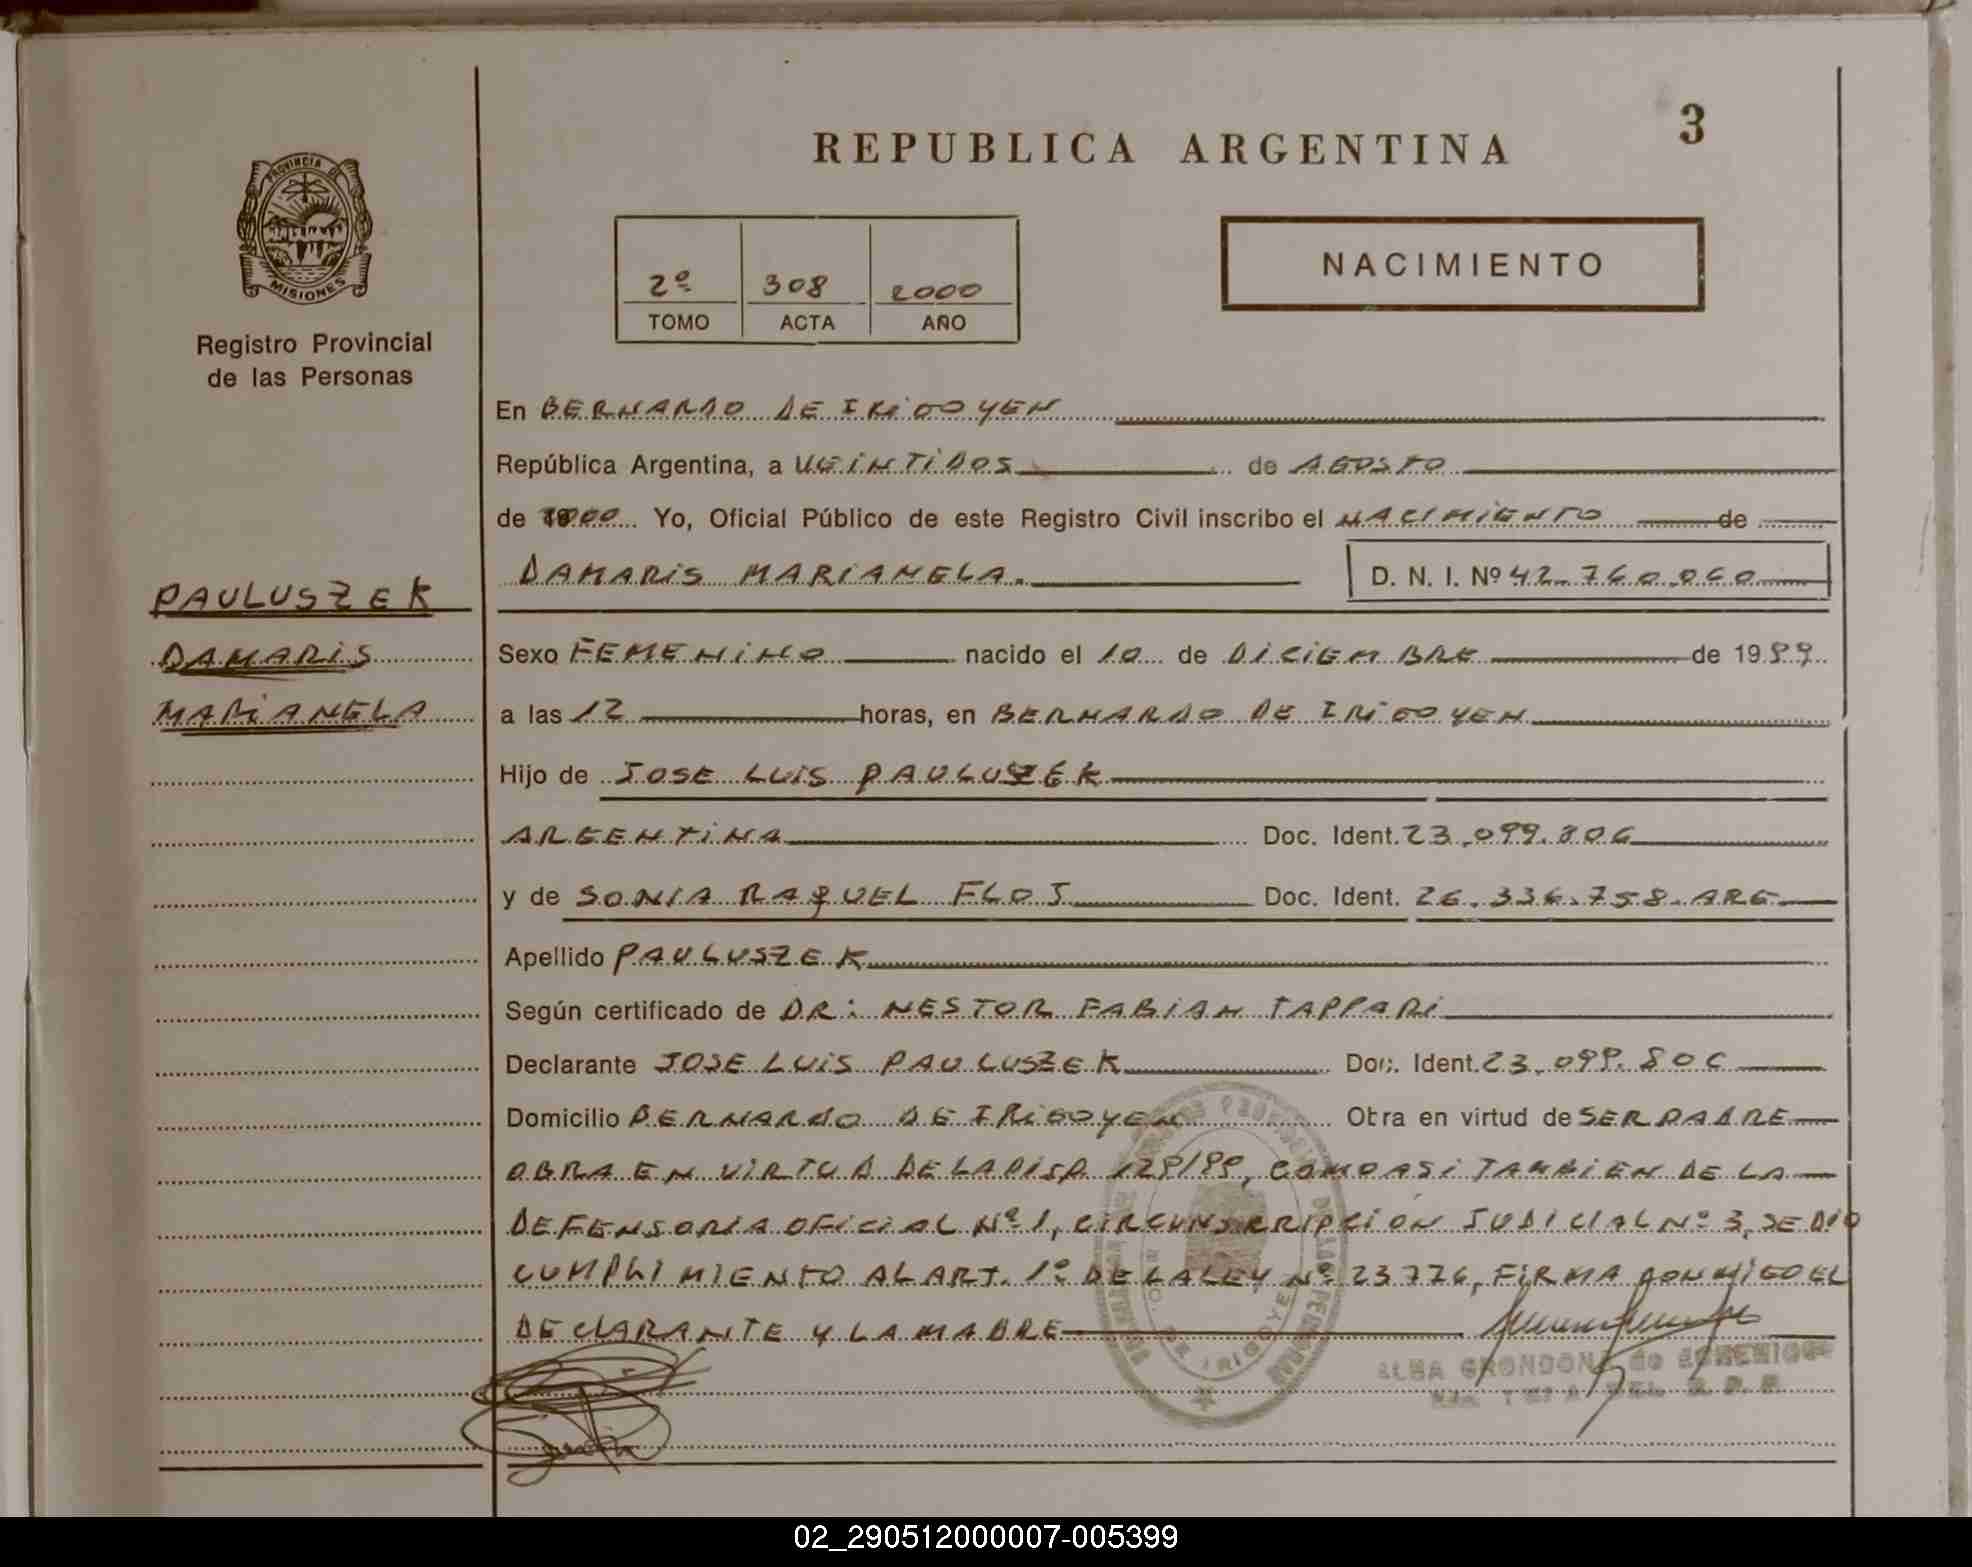 REPUBLICA ARGENTINA
3
PROVINCIA DE
MISIONES
Registro Provincial
de las Personas
2º 308 2000
TOMO ACTA AÑO
NACIMIENTO
En BERNARDO DE IRIGOYEN
República Argentina, a VEINTIDOS de AGOSTO
de 2000 Yo, Oficial Público de este Registro Civil inscribo el NACIMIENTO de
DAMARIS MARIANELA. D. N. I. Nº 42.760.060
PAULUSZEK
DAMARIS
MARIANELA
Sexo FEMENINO nacido el 10 de DICIEMBRE de 1999
a las 12 horas, en BERNARDO DE IRIGOYEN
Hijo de JOSE LUIS PAULUSZEK
ARGENTINA Doc. Ident. 23.099.806
y de SONIA RAQUEL FLOS Doc. Ident. 26.336.758. ARG
Apellido PAULUSZEK
Según certificado de DR: NESTOR FABIAN TAPPARI
Declarante JOSE LUIS PAULUSZEK Doc. Ident. 23.099.806
Domicilio BERNARDO DE IRIGOYEN Obra en virtud de SER PADRE
OBRA EN VIRTUD DE LA DISP. 129/99, COMO ASI TAMBIEN DE LA
DEFENSORIA OFICIAL Nº 1, CIRCUNSCRIPCION JUDICIAL Nº 3, SE DIO
CUMPLIMIENTO AL ART. 1º DE LA LEY Nº 23776, FIRMA CONMIGO EL
DECLARANTE Y LA MADRE
DE IRIGOYEN
ALBA GRONDONA de
02_290512000007-005399